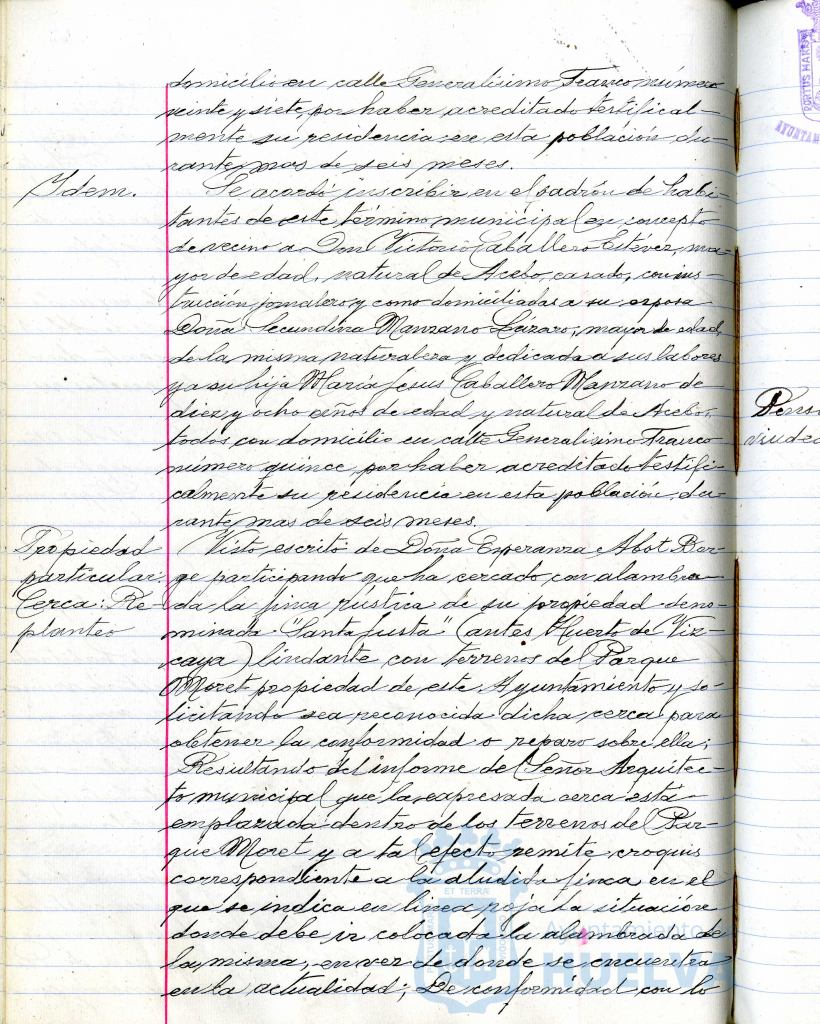 domicilio en calle Generalísimo Franco número
veinte y siete, por haber acreditado testifical-
mente su residencia en esta población, du-
rante mas de seis meses.
Idem.
Se acordó inscribir en el padrón de habi-
tantes de este término municipal en concepto
de vecino a Don Victorio Caballero Estévez, ma-
yor de edad, natural de Acebo, casado, con ins-
trucción, jornalero, y como domiciliadas a su esposa
Doña Secundina Manzano Lázaro, mayor de edad,
de la misma naturaleza y dedicada a sus labores
y a su hija María Jesus Caballero Manzano de
diez y ocho años de edad y natural de Acebo,
todos con domicilio en calle Generalísimo Franco
número quince, por haber acreditado testifi-
calmente su residencia en esta población, du-
rante mas de seis meses.
Propiedad
particular:
Cerca: Re-
planteo
Visto escrito de Doña Esperanza Abot Bor-
ge participando que ha cercado con alambra-
da la finca rústica de su propiedad deno-
minada "Santa Justa" (antes Huerto de Viz-
caya) lindante con terrenos del Parque
Moret propiedad de este Ayuntamiento y so-
licitando sea reconocida dicha cerca para
obtener la conformidad o reparo sobre ella;
Resultando del informe del Señor Arquitec-
to municipal que la expresada cerca está
emplazada dentro de los terrenos del Par-
que Moret y a tal efecto remite croquis
correspondiente a la aludida finca en el
que se indica en línea roja la situación
donde debe ir colocada la alambrada de
la misma, en vez de donde se encuentra
en la actualidad; De conformidad con lo
Ayuntamiento
HUELVA
ET TERRÆ
PORTUS MARIS
AYUNTAM
Pens
viuded